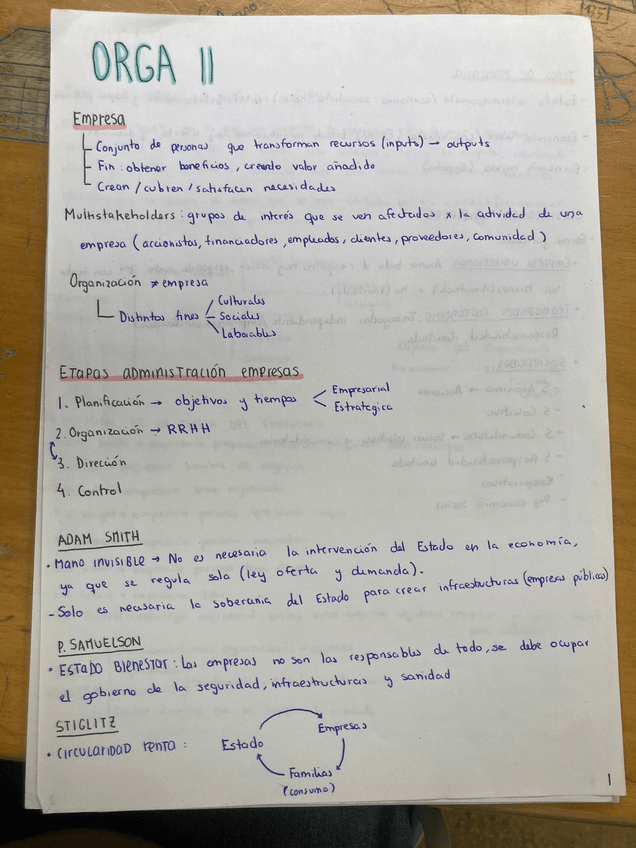 ORGA II
Empresa
Conjunto de personas que transforman recursos (inputs) → outputs
Fin: obtener beneficios, creando valor añadido
Crean / cubren / satisfacen necesidades
Multistakeholders: grupos de interés que se ven afectados x la actividad de una
empresa (accionistas, financiadores, empleados, clientes, proveedores, comunidad)
Organización ≠ empresa
Distintos fines
Culturales
Sociales
Laborables
Etapas administración empresas
1. Planificación → objetivos y tiempos
Empresarial
Estratégica
2. Organización → RRHH
3. Direción
4. Control
ADAM SMITH
• MANO INVISIBLE → No es necesaria la intervención del Estado en la economía,
ya que se regula sola (ley oferta y demanda).
- Solo es necesaria la soberanía del Estado para crear infraestructuras (empresas públicas)
P. SAMUELSON
• ESTADO BIENESTAR: Las empresas no son las responsables de todo, se debe ocupar
el gobierno de la seguridad, infraestructuras y sanidad
STIGLITZ
• CIRCULARIDAD RENTA:
Estado
Empresas
Familias
(consumo)
1